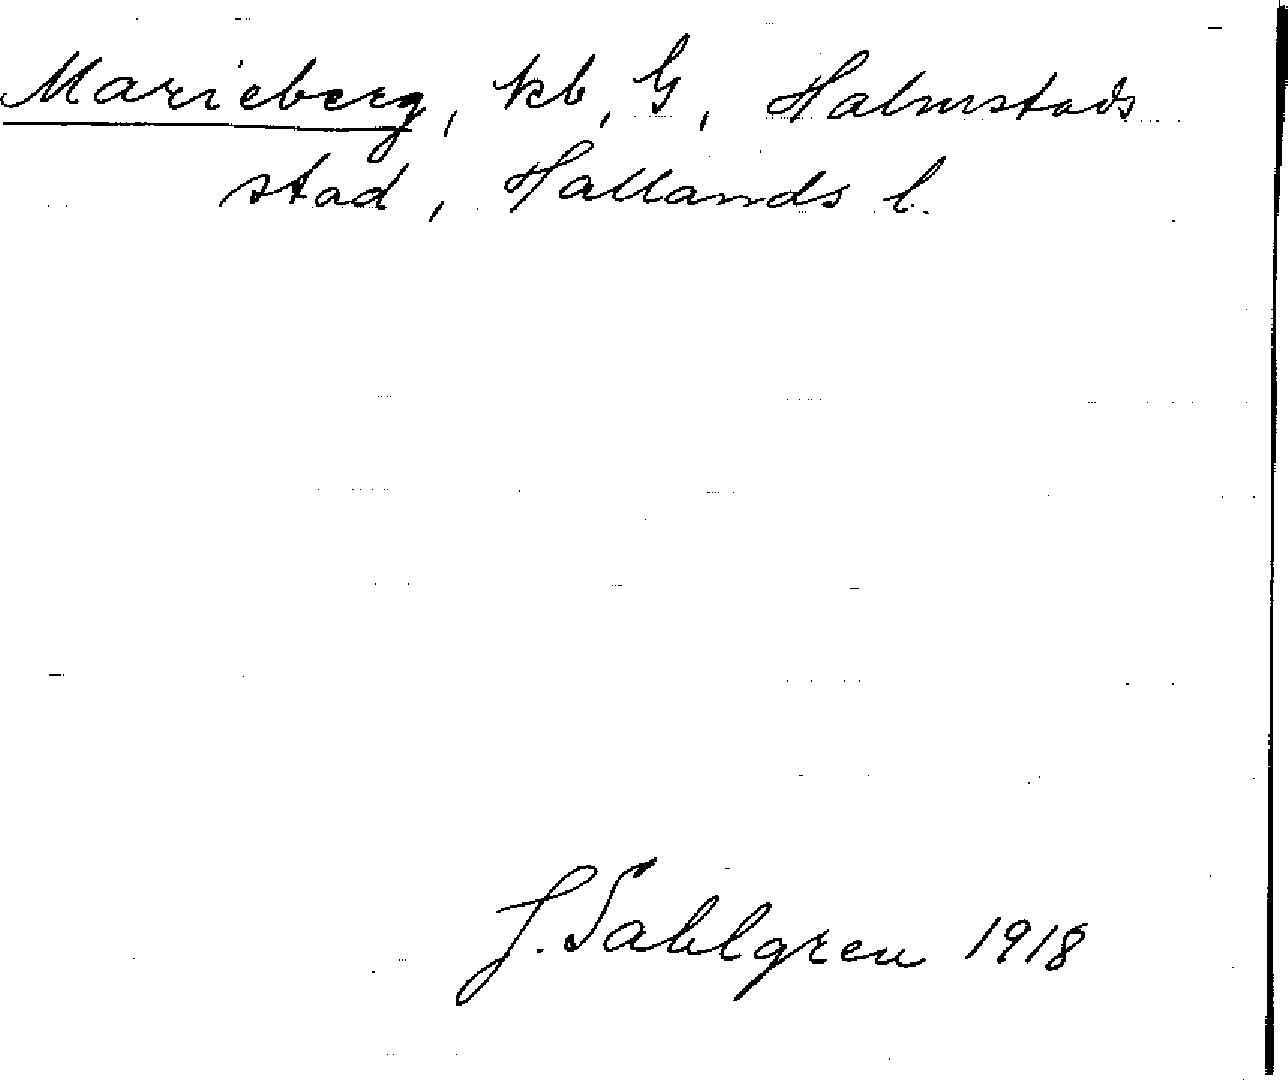 Marieberg, kb, G, Halmstads
stad, Hallands l.
J. Sahlgren 1918